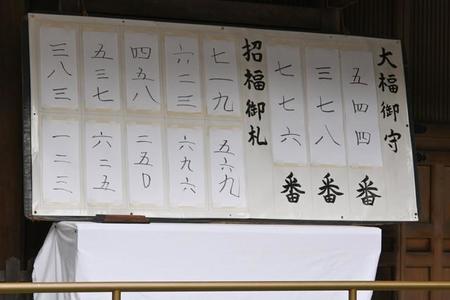 大福御守
五四四番
三七八番
七七六番
招福御札
七一九
五六九
六二三
六九六
四五八
二五〇
五三七
六二五
三八三
一二三